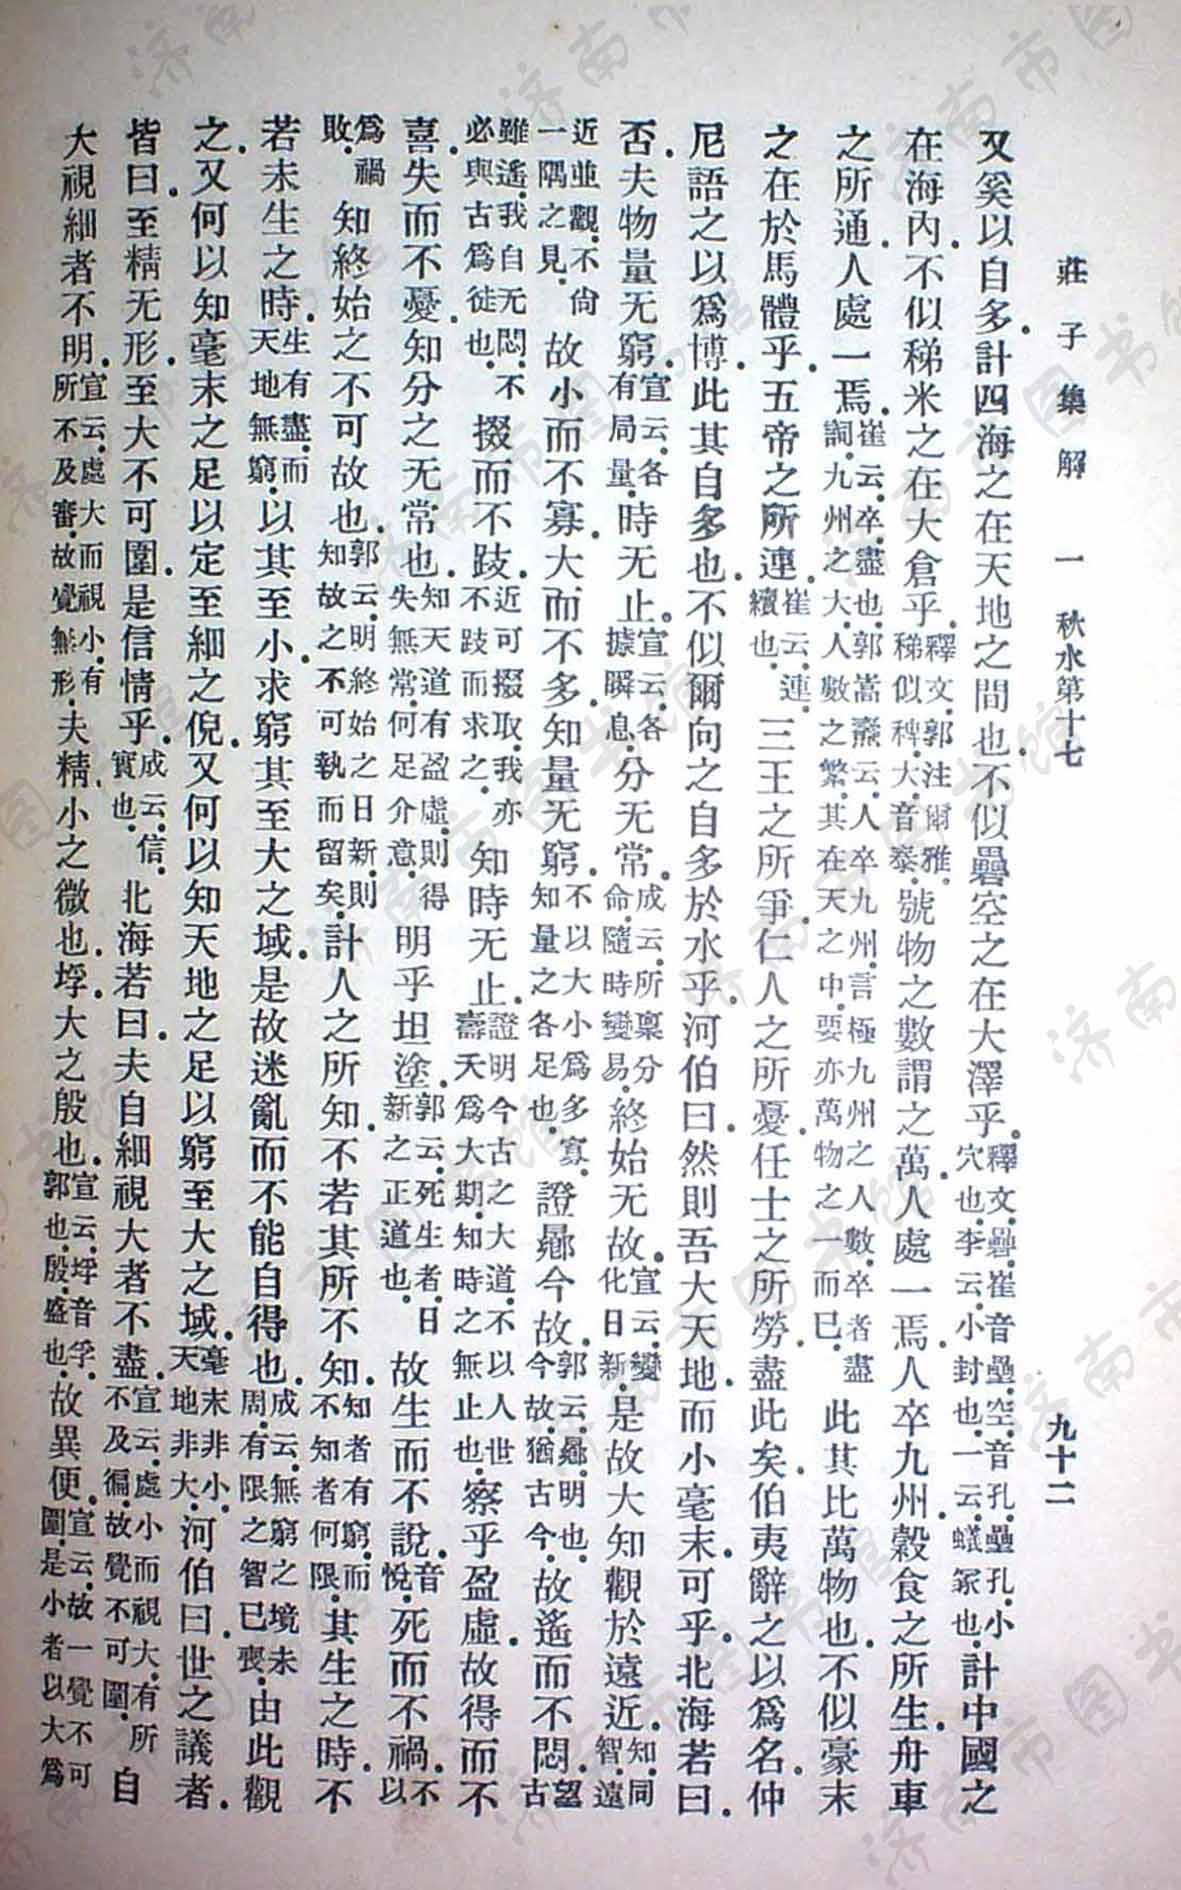 莊子集解　一　秋水第十七　九十二
又奚以自多.計四海之在天地之間也.不似礨空之在大澤乎。釋文.礨.崔音壘.空.音孔.壘孔.小穴也.李云.小封也.一云.蟻冢也.計中國之
在海內.不似稊米之在大倉乎.釋文.郭注爾雅.稊似稗.大.音泰.號物之數謂之萬.人處一焉.人卒九州.穀食之所生.舟車
之所通.人處一焉.崔云.卒.盡也.郭嵩燾云.人卒九州.言極九州之人數.卒者盡詞.九州之大.人數之繁.其在天之中.要亦萬物之一而已.此其比萬物也.不似豪末
之在於馬體乎.五帝之所連.崔云.連.續也.三王之所爭.仁人之所憂.任士之所勞.盡此矣.伯夷辭之以爲名.仲
尼語之以爲博.此其自多也.不似爾向之自多於水乎.河伯曰.然則吾大天地.而小毫末.可乎.北海若曰.
否.夫物量无窮.宣云.各有局量.時无止。宣云.各據瞬息.分无常.成云.所稟分命.隨時變易.終始无故.宣云.變化日新.是故大知觀於遠近.知同智.遠
近並觀.不尚一隅之見.故小而不寡.大而不多.知量无窮.不以大小爲多寡.知量之各足也.證曏今故.郭云.曏.明也.今故.猶古今.故遙而不悶.望古
雖遙.我自无悶.不必與古爲徒也.掇而不跂.近可掇取.我亦不跂而求之.知時无止.證明今古之大道.不以人世壽夭爲大期.知時之無止也.察乎盈虛.故得而不
喜.失而不憂.知分之无常也.知天道有盈虛.則得失無常.何足介意.明乎坦塗.郭云.死生者.日新之正道也.故生而不說.音悅.死而不禍.不以
爲禍敗.知終始之不可故也.郭云.明終始之日新.則知故之不可執而留矣.計人之所知.不若其所不知.知者有窮.而不知者何限.其生之時.不
若未生之時.生有盡.而天地無窮.以其至小.求窮其至大之域.是故迷亂而不能自得也.成云.無窮之境未周.有限之智已喪.由此觀
之.又何以知毫末之足以定至細之倪.又何以知天地之足以窮至大之域.毫末非小.天地非大.河伯曰.世之議者.
皆曰.至精无形.至大不可圍.是信情乎.成云.信.實也.北海若曰.夫自細視大者不盡.宣云.處小而視大.有所不及徧.故覺不可圍.自
大視細者不明.宣云.處大而視小.有所不及審.故覺無形.夫精.小之微也.垺.大之殷也.宣云.垺音孚.郭也.殷.盛也.故異便.宣云.故一覺不可圍.是小者以大爲
济南市图书馆